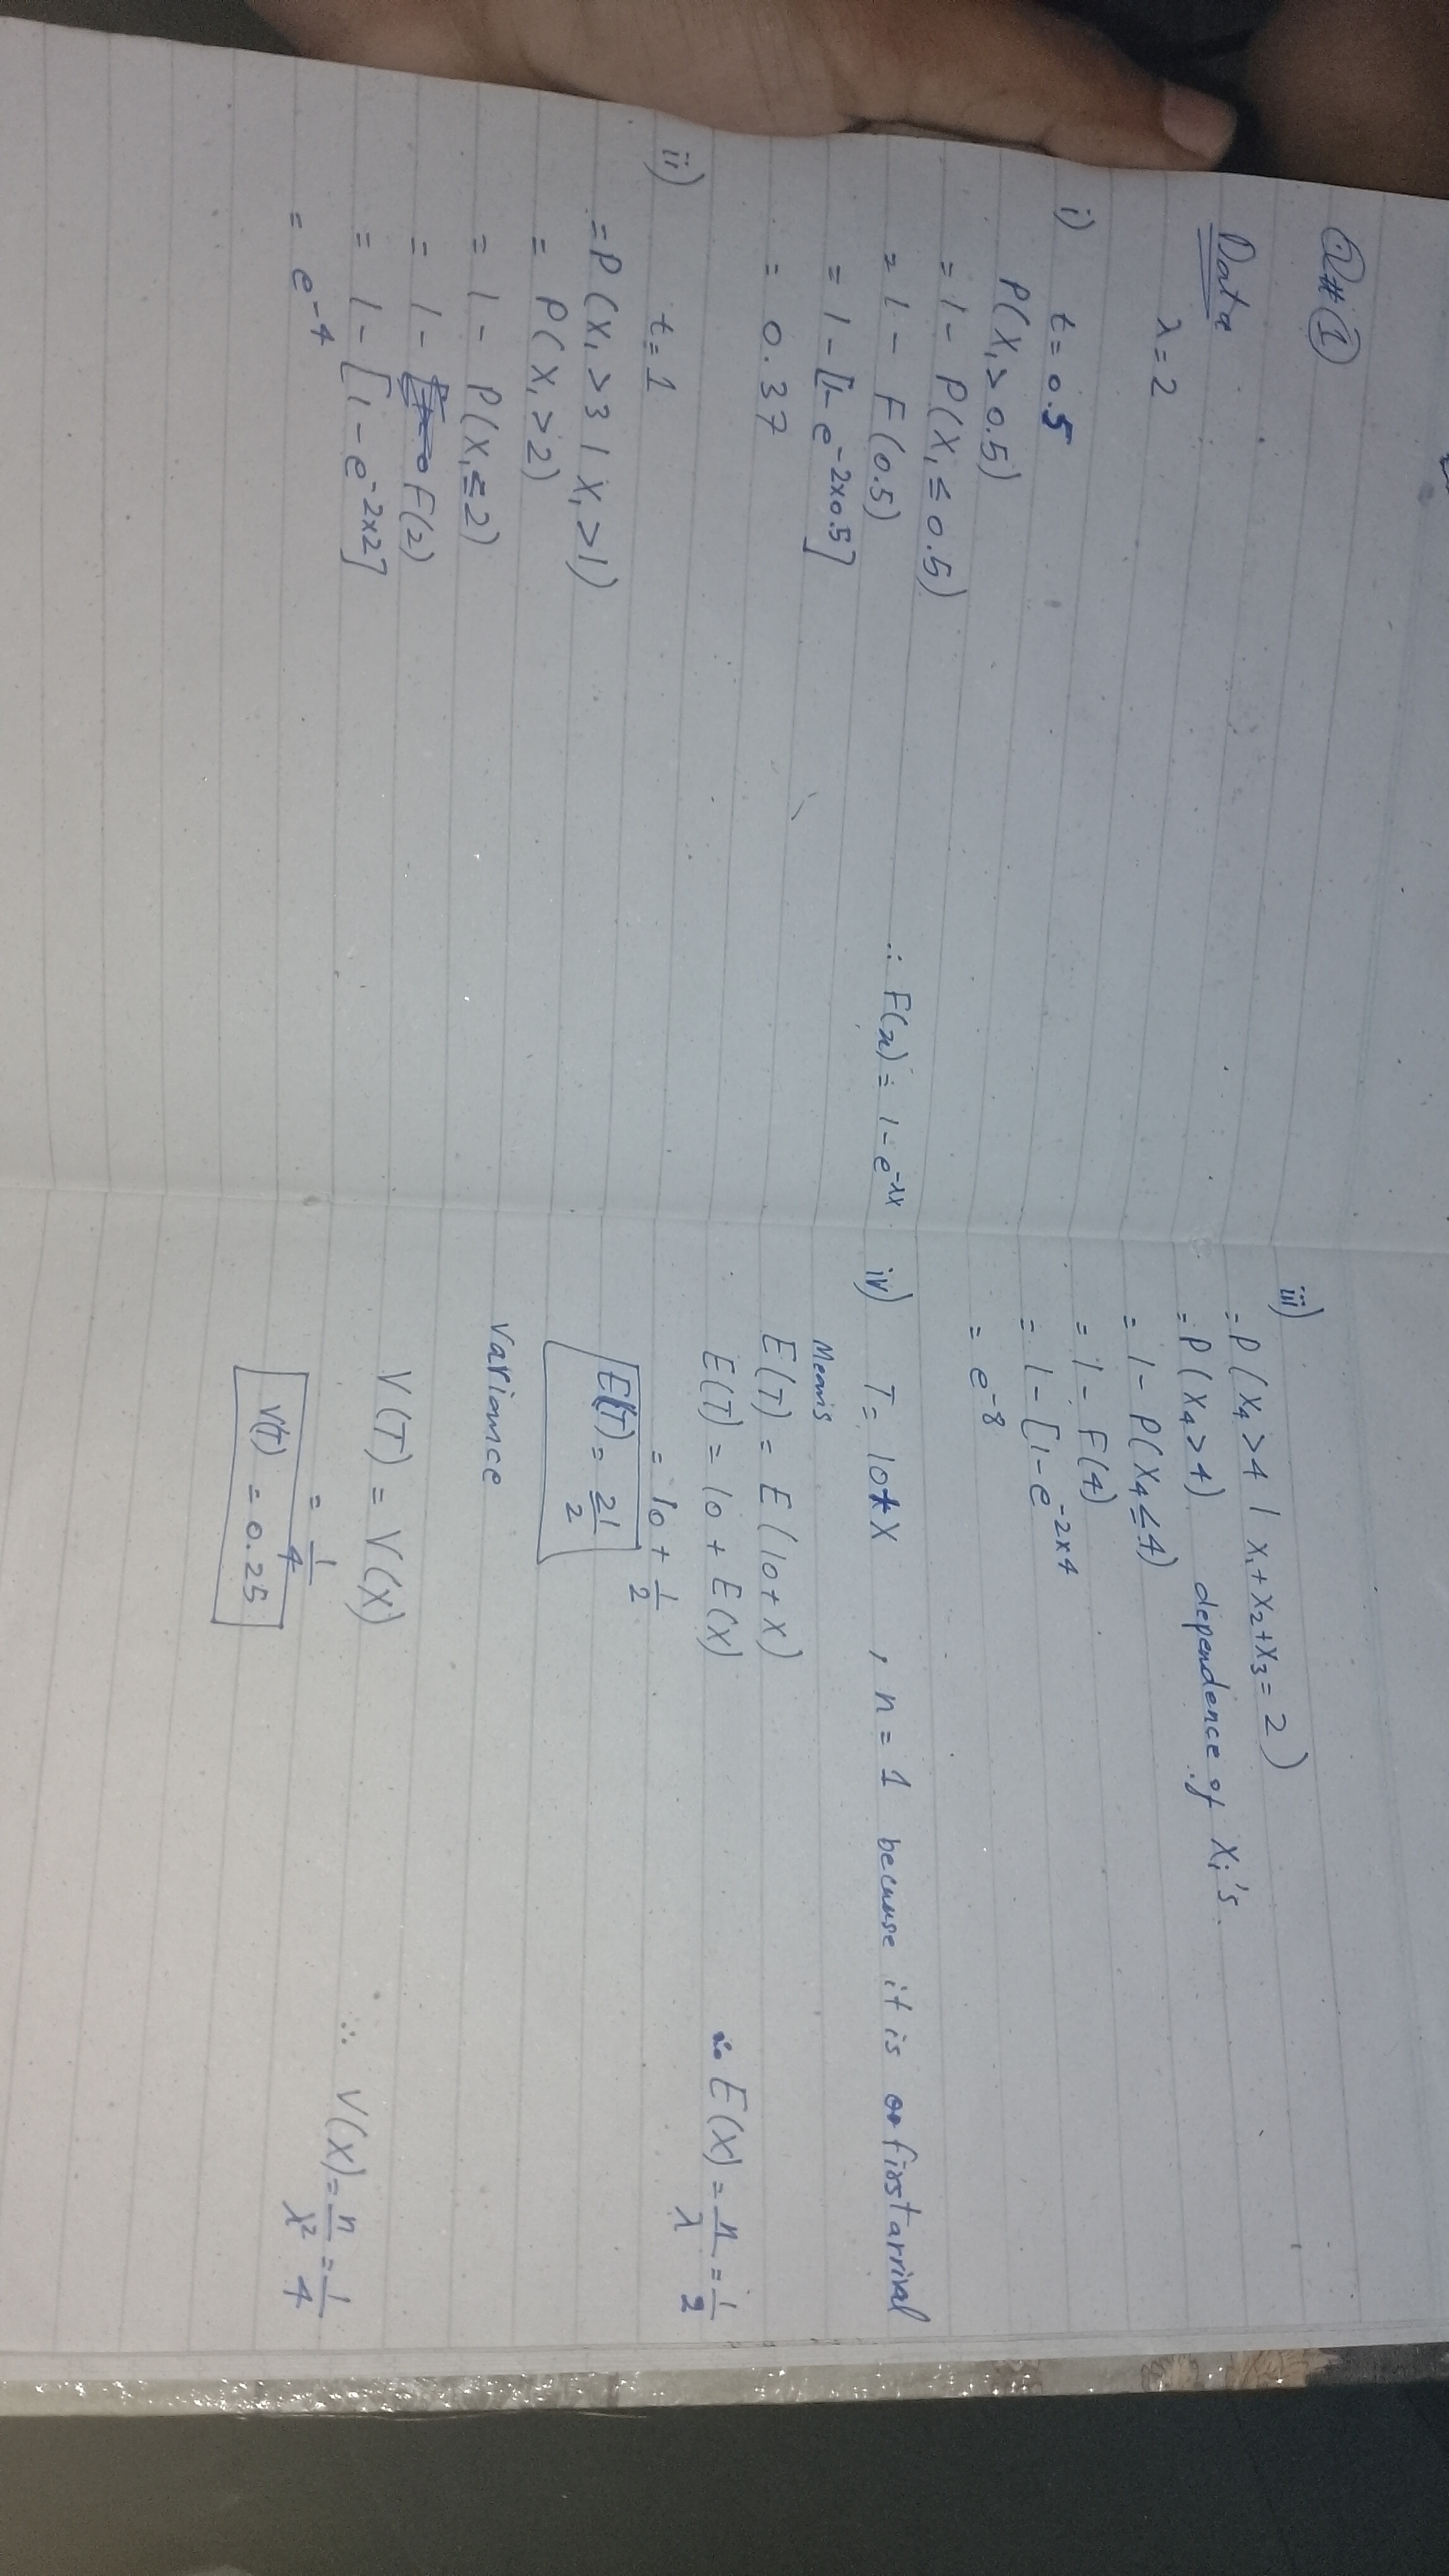 Q#(1)
Data
λ=2
i) t=0.5
P(X₁>0.5)
= 1 - P(X₁ ≤ 0.5)
= 1 - F(0.5) ∴ F(x) = 1-e^-λx
= 1 - [1-e^-2x0.5]
= 0.37
ii) t=1
=P(X₁>3 | X₁>1)
= P(X₁>2)
= 1 - P(X₁≤2)
= 1 - F(2)
= 1 - [1-e^-2x2]
= e^-4
iii)
=P(X₄>4 | X₁+X₂+X₃=2)
=P(X₄>4) dependence of Xᵢ's.
= 1- P(X₄≤4)
= 1 - F(4)
= 1 - [1-e^-2x4
= e^-8
iv) T= 10+X , n=1 because it is first arrival
Means
E(T) = E(10+X)
E(T) = 10 + E(X) ∴ E(X) = n/λ = 1/2
= 10 + 1/2
E(T) = 21/2
Variance
V(T) = V(X)
= 1/4 ∴ V(X) = n/λ² = 1/4
V(T) = 0.25